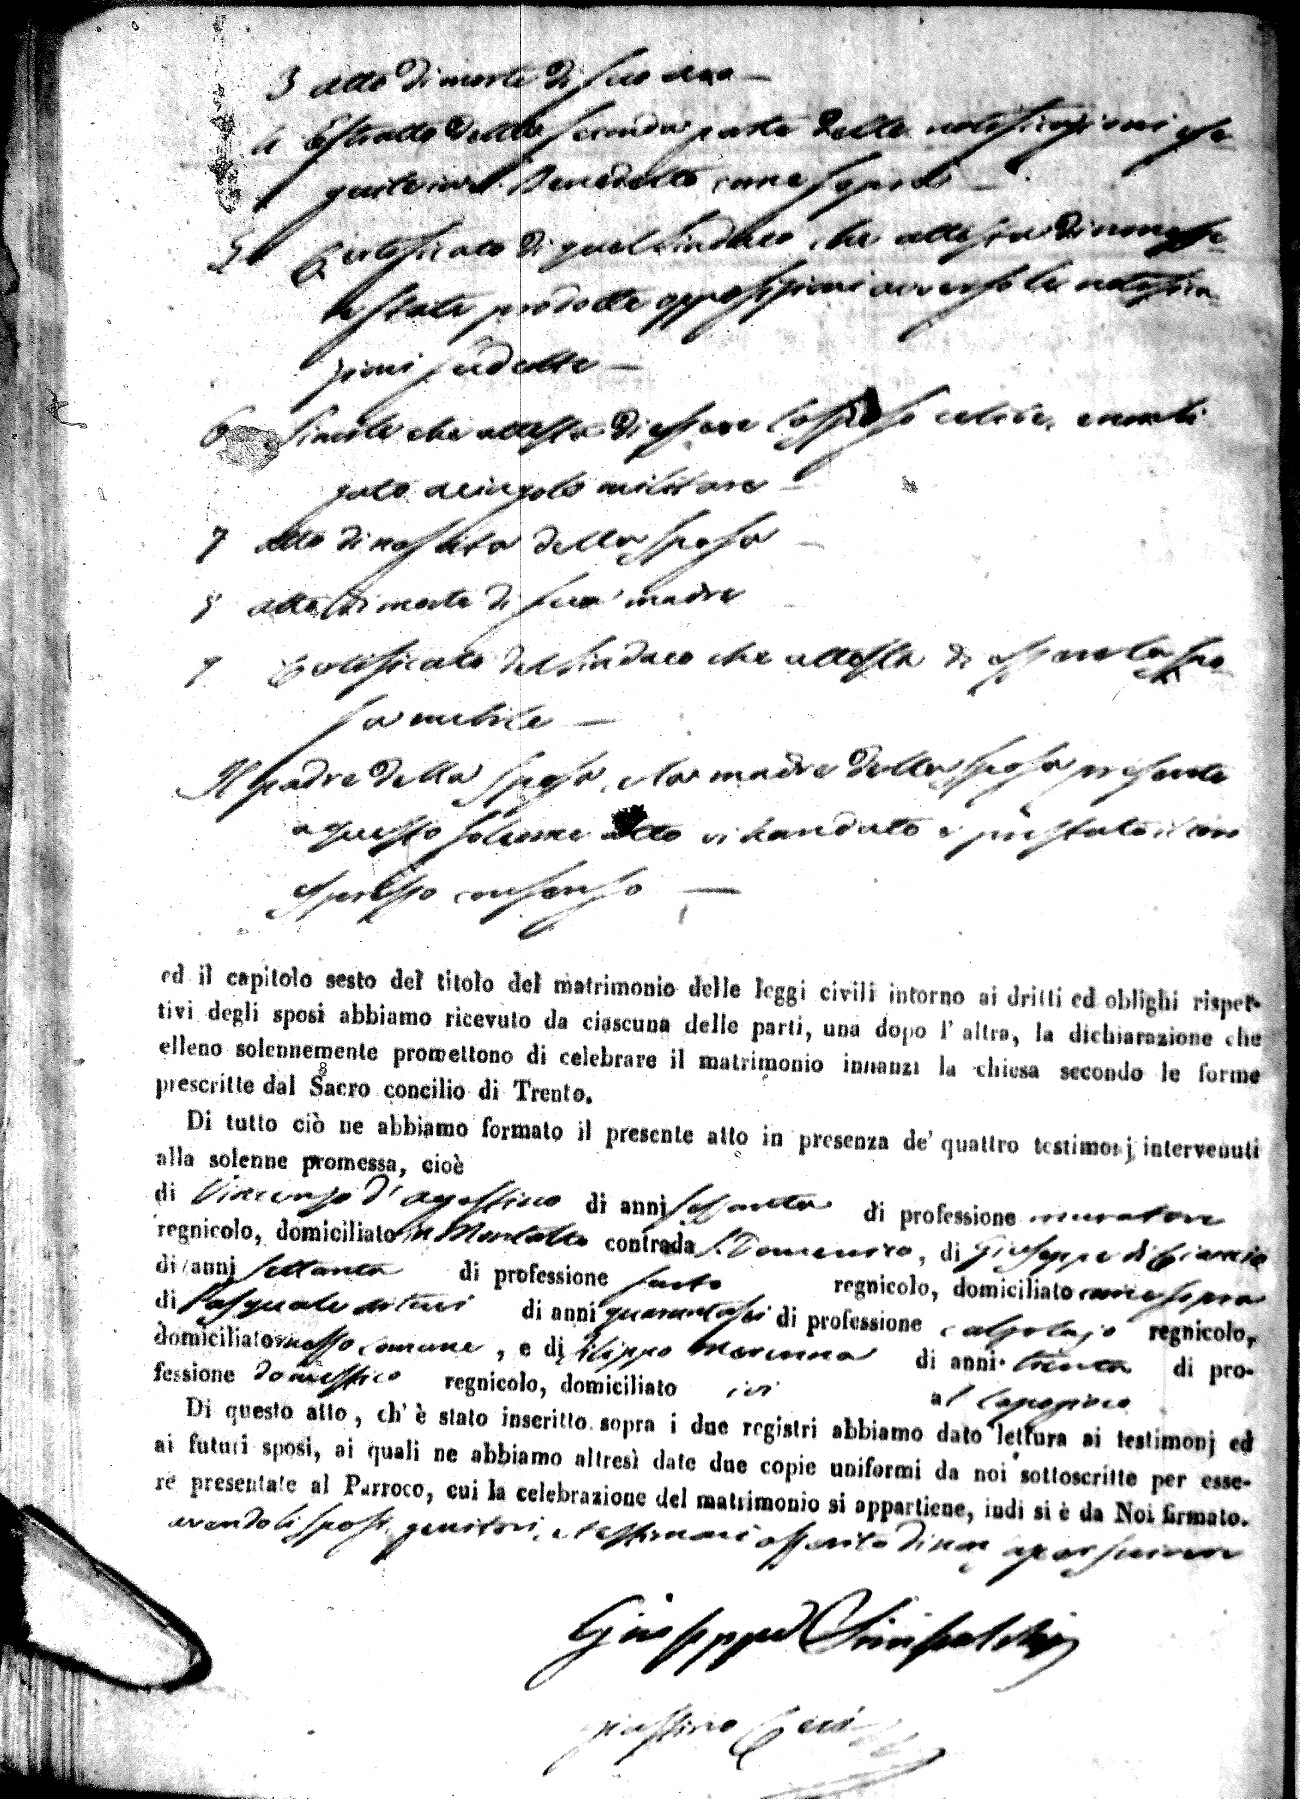 3 atto di morte di suo avo —
4 Estratto della seconda parte delle notificazioni ese
guite in S. Benedetto come sopra —
5 Certificato di quel Sindaco che attesta di non esse
re state prodotte opposizioni avverso le notifica
zioni suddette —
6 Simile che attesta di essere lo sposo celibe, e non li
gato a cingolo militare —
7 atto di nascita della sposa —
8 atto di morte di sua madre
9 Certificato del Sindaco che attesta di essere la spo
sa nubile —
Il padre della sposa, e la madre dello sposo presente
a questo solenne atto vi han dato e prestato il loro
espresso consenso —
ed il capitolo sesto del titolo del matrimonio delle leggi civili intorno ai dritti ed oblighi rispet-
tivi degli sposi abbiamo ricevuto da ciascuna delle parti, una dopo l' altra, la dichiarazione che
elleno solennemente promettono di celebrare il matrimonio innanzi la chiesa secondo le forme
prescritte dal Sacro concilio di Trento.
Di tutto ciò ne abbiamo formato il presente atto in presenza de' quattro testimonj intervenuti
alla solenne promessa, cioè
di Vincenzo d'Agostino di anni sessanta di professione muratore
regnicolo, domiciliato in Montalto contrada S. Domenico, di Giuseppe di
di anni settanta di professione sarto regnicolo, domiciliato come sopra
di Pasquale di anni quarantasei di professione calzolajo regnicolo,
domiciliato comune, e di Filippo di anni trenta di pro-
fessione domestico regnicolo, domiciliato ivi al
Di questo atto, ch' è stato inscritto sopra i due registri abbiamo dato lettura ai testimonj ed
ai futuri sposi, ai quali ne abbiamo altresì date due copie uniformi da noi sottoscritte per esse-
re presentate al Parroco, cui la celebrazione del matrimonio si appartiene, indi si è da Noi firmato.
avendo li sposi, genitori, e testimoni asserito di non saper scrivere
Giuseppe